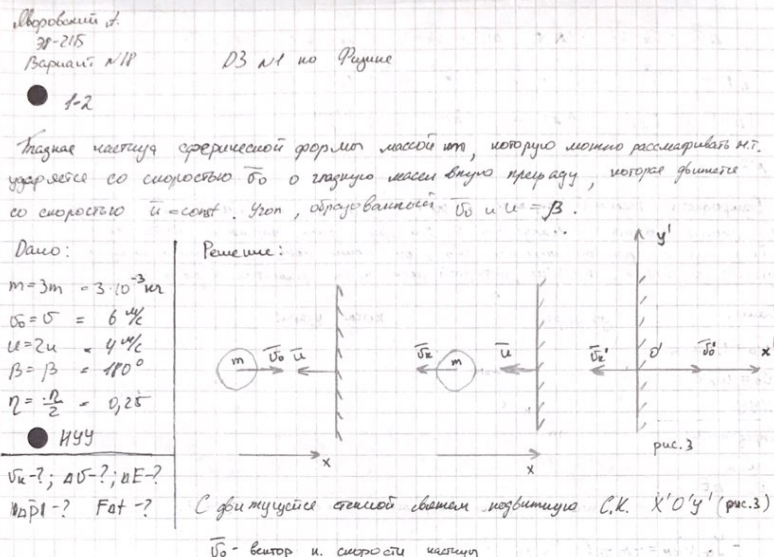 Яворовский А.
Э8-21Б
Вариант N18
ДЗ N1 по Физике
1-2
Гладкая частица сферической формы массой m, которую можно рассматривать м.т.
ударяется со скоростью v̅₀ о гладкую массивную преграду, которая движется
со скоростью u̅ = const. Угол, образованный v̅₀ и u = β.
Дано:
m = 3m = 3·10⁻³ кг
v₀ = v = 6 м/с
u = 2u = 4 м/с
β = β = 180°
η = η/2 = 0,25
НУУ
vₖ-?; Δv-?; ΔE-?
|Δp̅|-? FΔt-?
Решение:
m v̅₀ u̅
x
v̅ₖ m u̅
x
y'
v̅ₖ' O' v̅₀' x'
рис.3
С движущейся стенкой свяжем подвижную С.К. X'O'Y' (рис.3)
v̅₀ - вектор н. скорости частицы